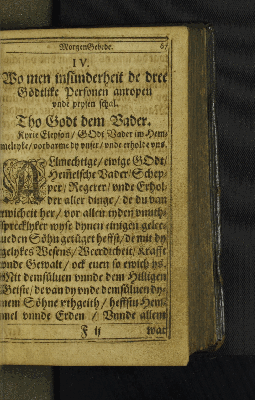 MorgenGebede.
IV.
Wo men insünderheit de dree
Gödtlike Personen anropen
vnde prysen schal.
Tho Godt dem Vader.
Kyrie Eleyson / GOdt Vader im Hem-
melryke / vorbarme dy vnser / vnde erholde vns.
ALlmechtige / ewige GOdt /
Hemelsche Vader / Schep-
per / Regerer / vnde Erhol-
der aller dinge / de du van
ewicheit her / vor allen tyden vnuth-
sprecklyker wyse dynen einigen gelee-
ueden Söhn getüget heffst / de mit dy
gelykes Wesens / Weerdicheit / Krafft
vnde Gewalt / ock euen so ewich ys.
Mit demsüluen vnnde dem Hilligen
Geiste / de van dy vnde demsüluen dy-
nem Söhne vthgeith / heffstu Hem-
mel vnnde Erden / Vnnde allent
F ij wat